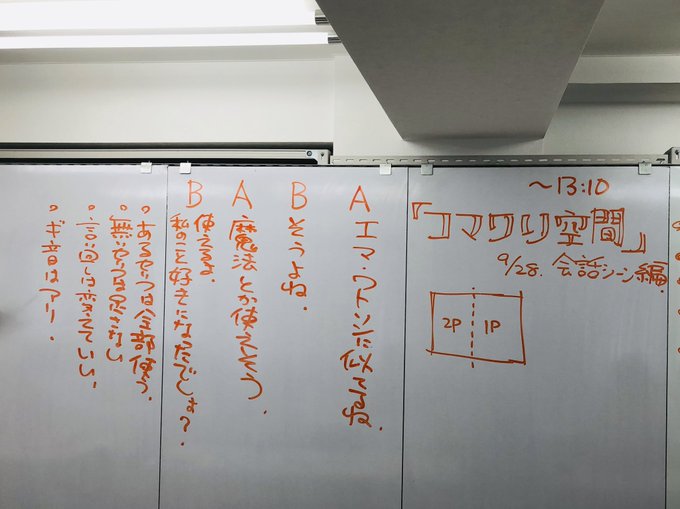 〜13:10
『コマワリ空間』
9/28. 会話シーン編
2P 1P
A エマ・ワトソンに似てるね。
B そうよね。
A 魔法とか使えそう。
B 使えるよ。
私のこと好きになったでしょ？
・あるやつは全部使う。
・無いやつは足さない
・言い回しは変えていい。
・ギ音はアリ。